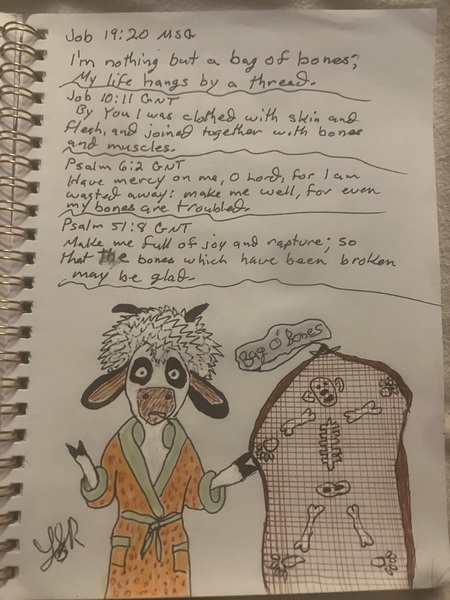 Job 19:20 MSG
I'm nothing but a bag of bones;
My life hangs by a thread.
Job 10:11 GNT
By You I was clothed with skin and
flesh, and joined together with bones
and muscles.
Psalm 6:2 GNT
Have mercy on me, O Lord, for I am
wasted away: make me well, for even
my bones are troubled.
Psalm 51:8 GNT
Make me full of joy and rapture; so
that the bones which have been broken
may be glad.
Bag O' Bones